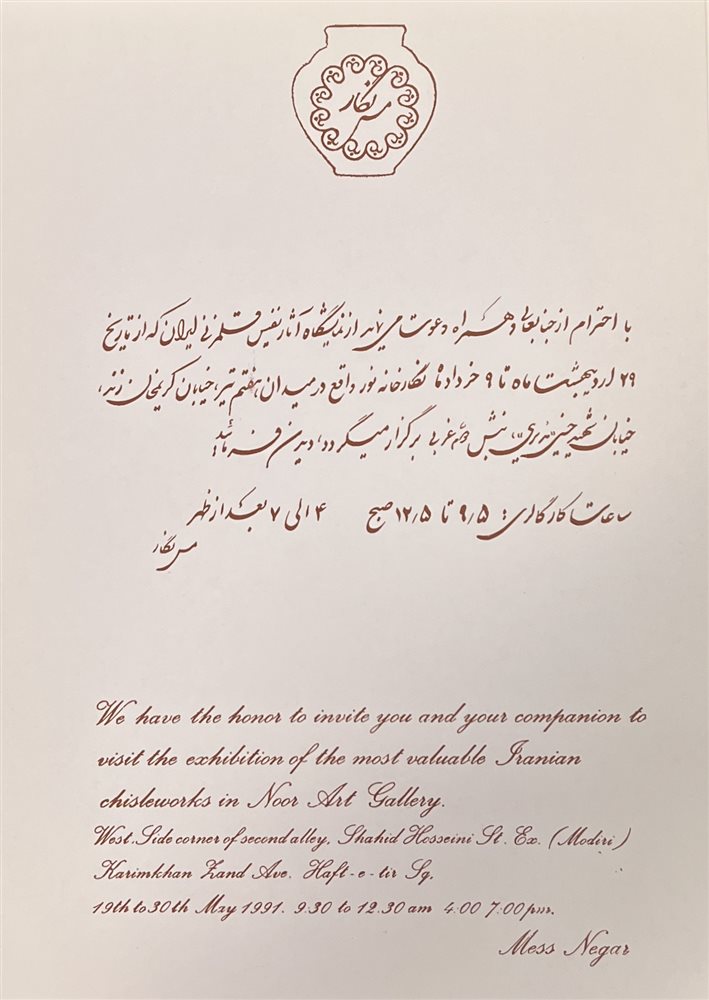 مس نگار
با احترام از جنابعالی و همراه دعوت می‌نماید از نمایشگاه آثار نفیس قلمزنی ایران که از تاریخ
۲۹ اردیبهشت ماه تا ۹ خرداد در نگارخانه نور واقع در میدان هفتم تیر، خیابان کریمخان زند،
خیابان شهید حسینی (مدیری)، نبش دوم غربی برگزار میگردد، دیدن فرمائید.
ساعات کار گالری: ۹٫۵ تا ۱۲٫۵ صبح ۴ الی ۷ بعد از ظهر
مس نگار
We have the honor to invite you and your companion to
visit the exhibition of the most valuable Iranian
chisleworks in Noor Art Gallery.
West. Side corner of second alley, Shahid Hosseini St. Ex. (Modiri)
Karimkhan Zand Ave. Haft-e-tir Sq.
19th to 30th May 1991. 9:30 to 12.30 am 4:00 7:00 pm.
Mess Negar